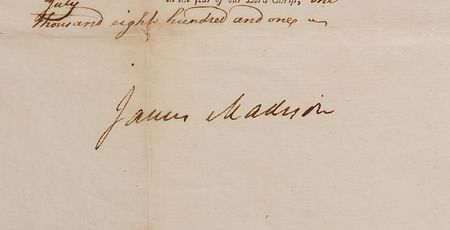 July in the year of our Lord Christ, one
thousand eight hundred and one
James Madison